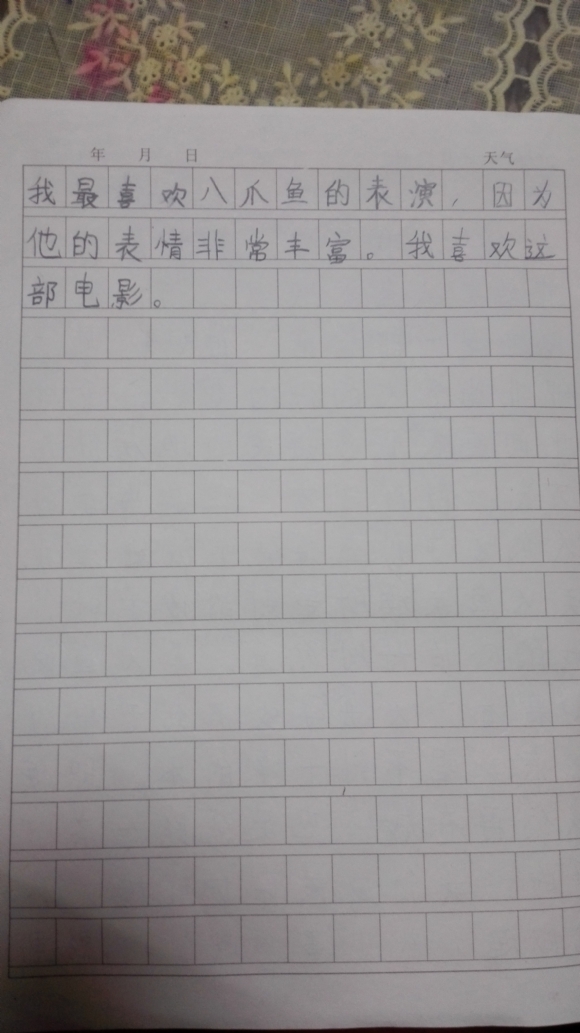 年 月 日 天气
我最喜欢八爪鱼的表演，因为
他的表情非常丰富。我喜欢这
部电影。